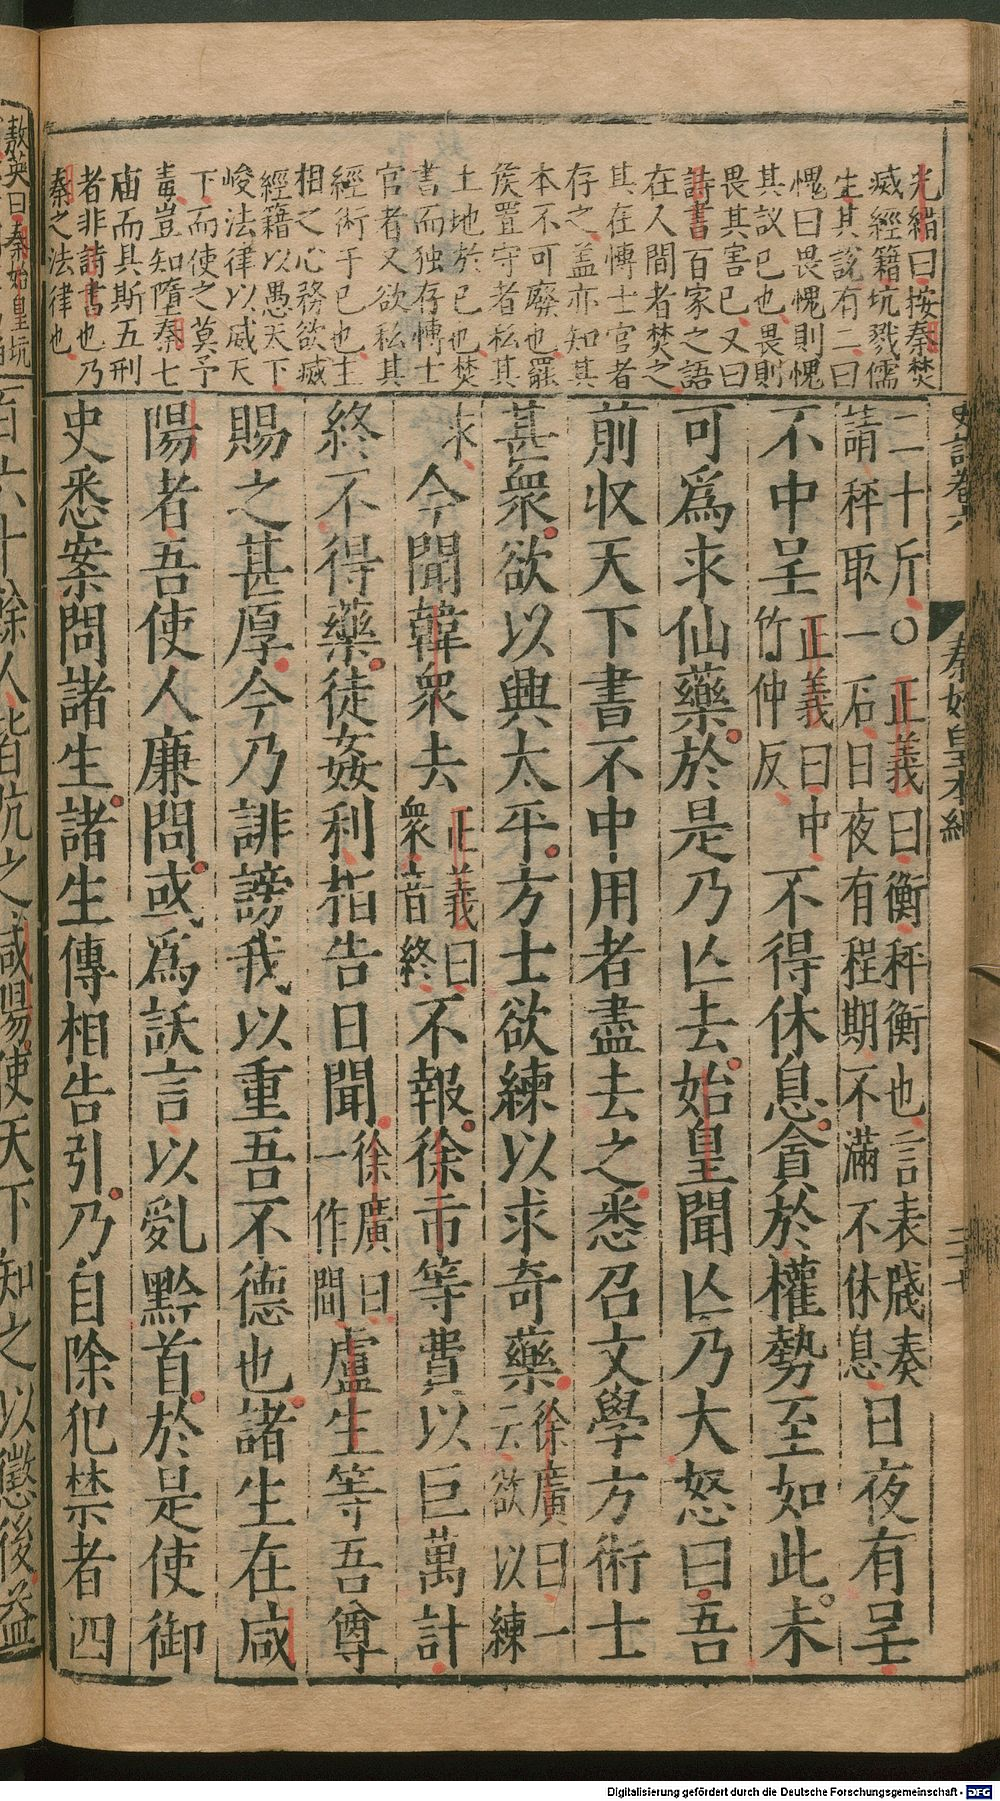 史記卷六　秦始皇本紀
光縉曰按秦焚
滅經籍坑戮儒
生其說有二曰
愧曰畏愧則愧
其議已也畏則
畏其害已又曰
詩書百家之語
在人間者焚之
其在博士官者
存之蓋亦知其
本不可廢也罷
侯置守者私其
土地於已也焚
書而独存博士
官者又欲私其
經術于已也主
相之心務欲滅
經籍以愚天下
峻法律以威天
下而使之莫予
毒豈知隳秦七
庙而具斯五刑
者非詩書也乃
秦之法律也
二十斤○正義曰衡秤衡也言表牋奏請秤取一石日夜有程期不滿不休息日夜有呈
不中呈正義曰中竹仲反不得休息貪於權勢至如此未
可爲求仙藥於是乃亾去始皇聞亾乃大怒曰吾
前收天下書不中用者盡去之悉召文學方術士
甚衆欲以興太平方士欲練以求奇藥徐廣曰一云欲以練
求今聞韓衆去正義曰衆音終不報徐市等費以巨萬計
終不得藥徒姦利相告日聞徐廣曰一作間盧生等吾尊
賜之甚厚今乃誹謗我以重吾不德也諸生在咸
陽者吾使人廉問或爲訞言以亂黔首於是使御
史悉案問諸生諸生傳相告引乃自除犯禁者四
敖英曰秦始皇坑
百六十餘人皆坑之咸陽使天下知之以懲後益
Digitalisierung gefördert durch die Deutsche Forschungsgemeinschaft - DFG